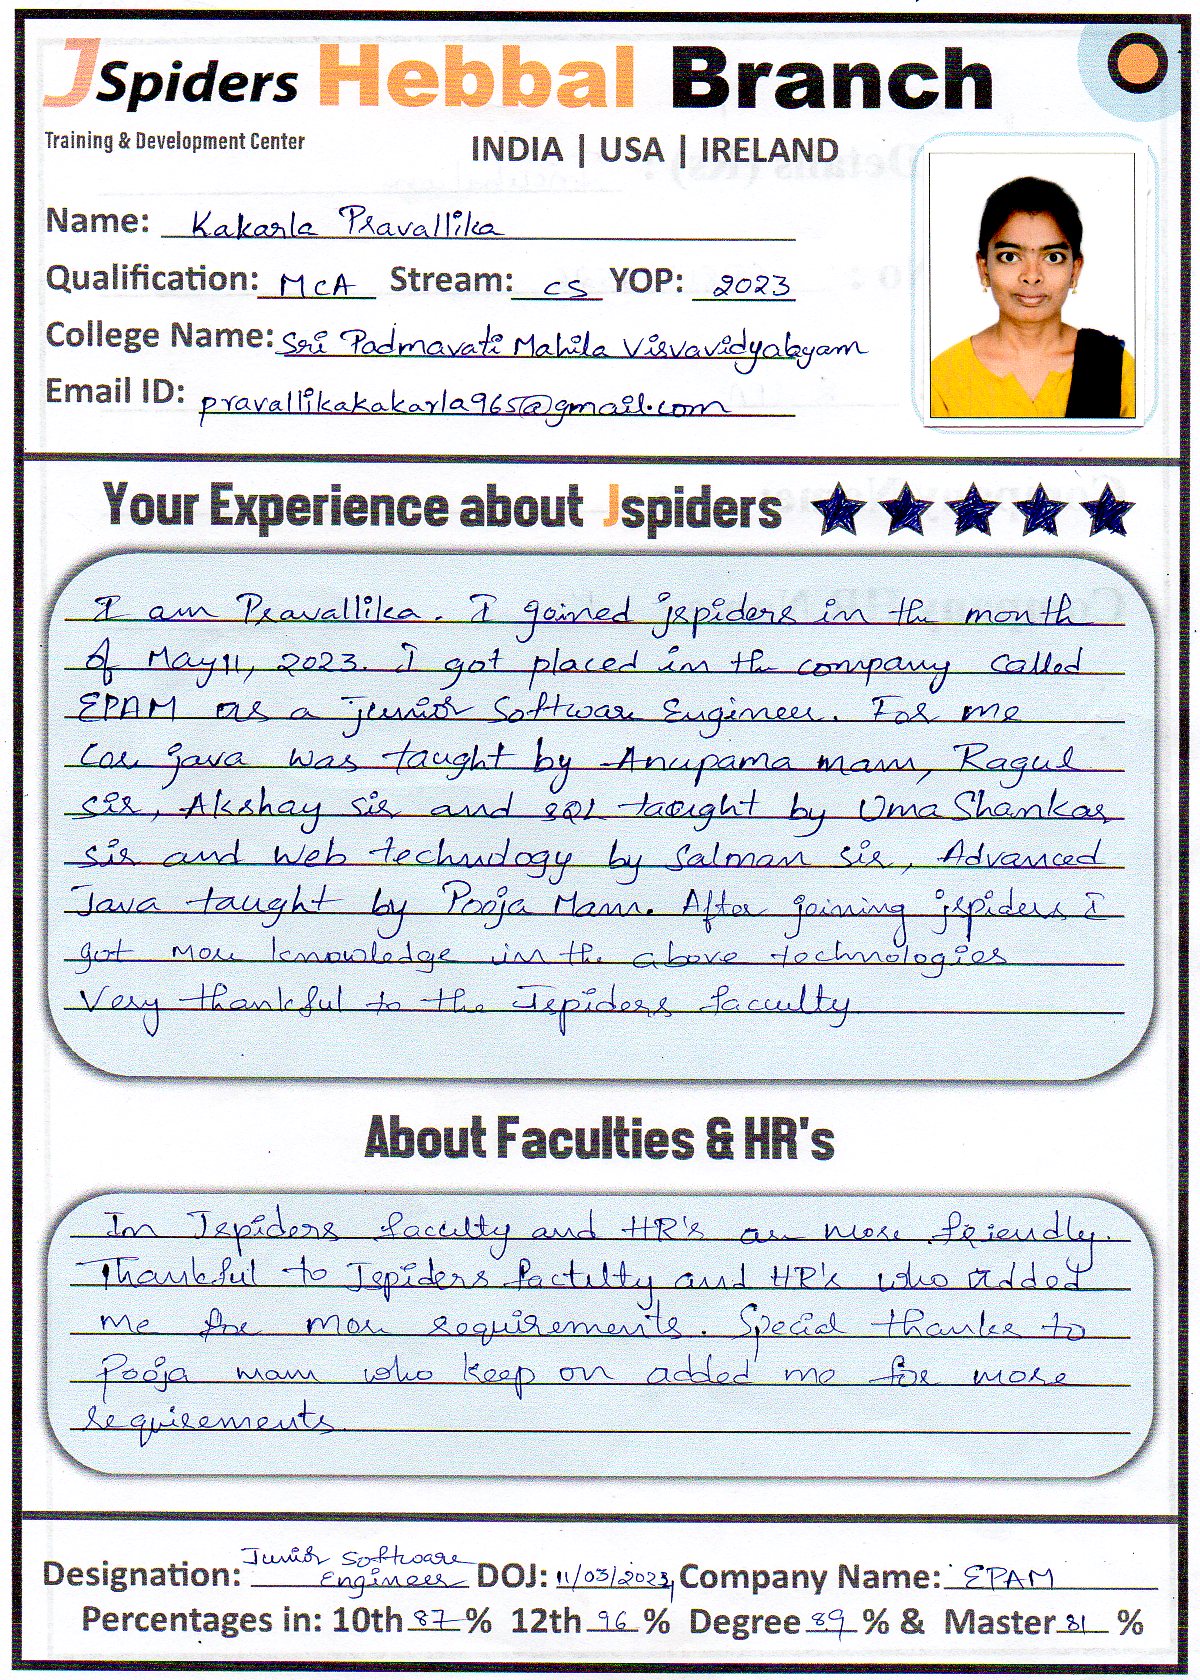 JSpiders Hebbal Branch
Training & Development Center
INDIA | USA | IRELAND
Name: Kakarla Pravallika
Qualification: MCA Stream: CS YOP: 2023
College Name: Sri Padmavati Mahila Visvavidyalayam
Email ID: pravallikakakarla965@gmail.com
Your Experience about Jspiders
I am Pravallika. I goined jspiders in the month
of May11, 2023. I got placed in the company called
EPAM as a junior Software Engineer. For me
Core java was taught by Anupama mam, Ragul
sir, Akshay sir and SQL taught by Uma Shankar
sir and Web technology by Salman sir, Advanced
Java taught by Pooja Mam. After joining jspiders I
got more knowledge in the above technologies
Very thankful to the Jspiders faculty
About Faculties & HR's
In Jspiders faculty and HR's are more friendly.
Thankful to Jspiders factulty and HR's who added
me for more requirements. Special thanks to
Pooja mam who keep on added me for more
requirements.
Designation: Junior Software Engineer DOJ: 11/03/2023 Company Name: EPAM
Percentages in: 10th 87 % 12th 96 % Degree 89 % & Master 81 %